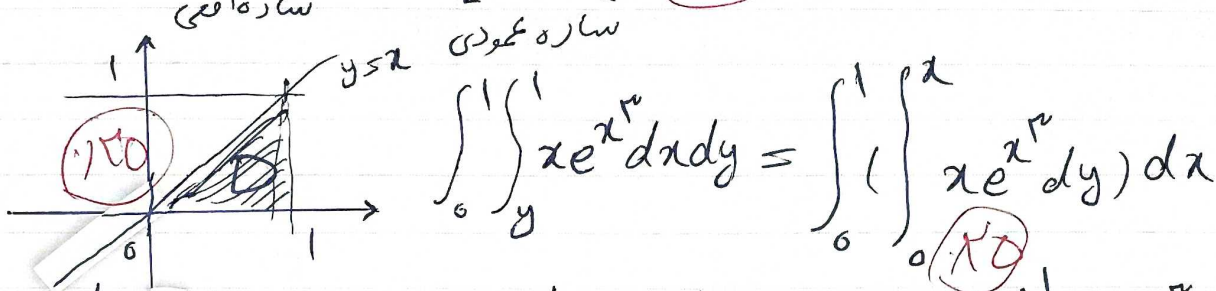 ساده افقی
ساده عمودی
y=x
1
D
0
1
۰٫۲۵
∫₀¹∫_y¹ xe^{x^۳}dxdy = ∫₀¹(∫₀ˣ xe^{x^۳}dy)dx